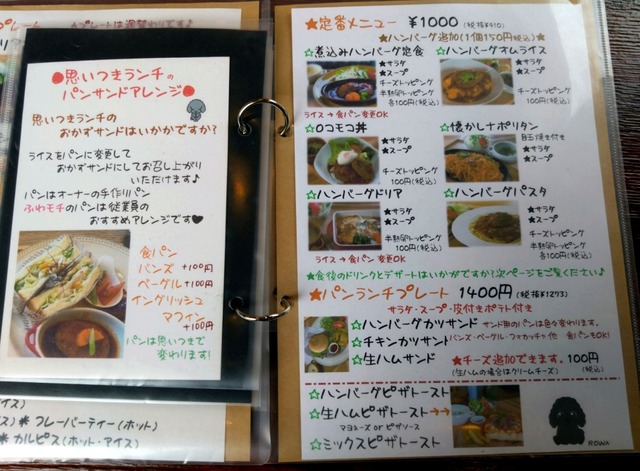 プレートは週替わりです。
●思いつきランチの
パンサンドアレンジ●
思いつきランチの
おかずサンドはいかがですか?
ライスをパンに変更して
おかずサンドにしてお召し上がり
いただけます♪
パンはオーナーの手作りパン
ふわモチのパンは従業員の
おすすめアレンジです♥
食パン
バンズ +100円
ベーグル +100円
イングリッシュ
マフィン +100円
パンは思いつきで
変わります!
イス)
ス) ＊ フレーバーティー(ホット)
＊ カルピス(ホット・アイス)
★定番メニュー ¥1000 (税抜¥910)
★ハンバーグ追加(1個150円税込)★
☆煮込みハンバーグ定食
★サラダ
★スープ
チーズトッピング
半熟卵トッピング
各100円(税込)
ライス→食パン変更OK
☆ハンバーグオムライス
★サラダ
★スープ
チーズトッピング
100円(税込)
☆ロコモコ丼
★サラダ
★スープ
チーズトッピング
100円(税込)
☆懐かしナポリタン
目玉焼き付き
★サラダ
★スープ
☆ハンバーグドリア
★サラダ
★スープ
半熟卵トッピング
100円(税込)
ライス→食パン変更OK
☆ハンバーグパスタ
★サラダ
★スープ
チーズトッピング
半熟卵トッピング
各100円(税込)
★食後のドリンクとデザートはいかがですか?次ページをご覧ください♪
★パンランチプレート 1400円 (税抜¥1273)
サラダ・スープ・皮付きポテト付き
☆ハンバーグカツサンド サンド用のパンは色々変わります。
☆チキンカツサンド バンズ・ベーグル・フォカッチャ他 食パンもOK!
☆生ハムサンド ★チーズ追加できます。100円
(生ハムの場合はクリームチーズ) (税込)
☆ハンバーグピザトースト
☆生ハムピザトースト→→
マヨネーズ or ピザソース
☆ミックスピザトースト
ROWA